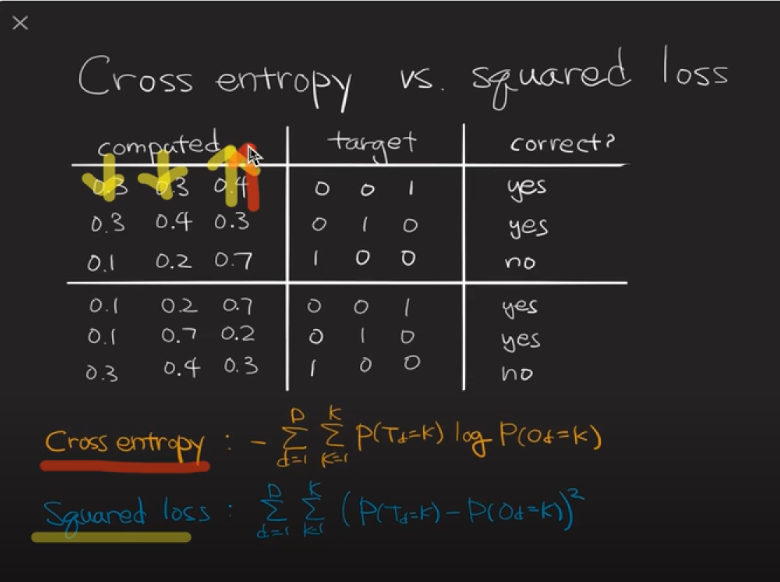 Cross entropy vs. squared loss
computed target correct?
0.3 0.3 0.4 0 0 1 yes
0.3 0.4 0.3 0 1 0 yes
0.1 0.2 0.7 1 0 0 no
0.1 0.2 0.7 0 0 1 yes
0.1 0.7 0.2 0 1 0 yes
0.3 0.4 0.3 1 0 0 no
Cross entropy : - ∑_{d=1}^{D} ∑_{k=1}^{K} P(T_d=K) log P(O_d=K)
Squared loss : ∑_{d=1}^{D} ∑_{k=1}^{K} (P(T_d=K) - P(O_d=K))²